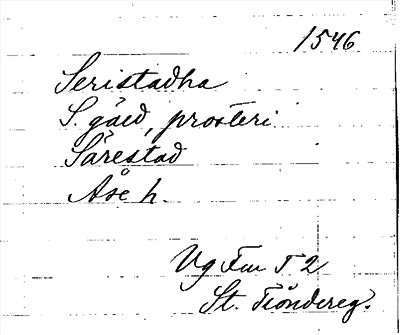 1546
Seristadha
S. gård, prosteri
Särestad
Åse h.
Vg Fru 52
St. Tiöndereg.